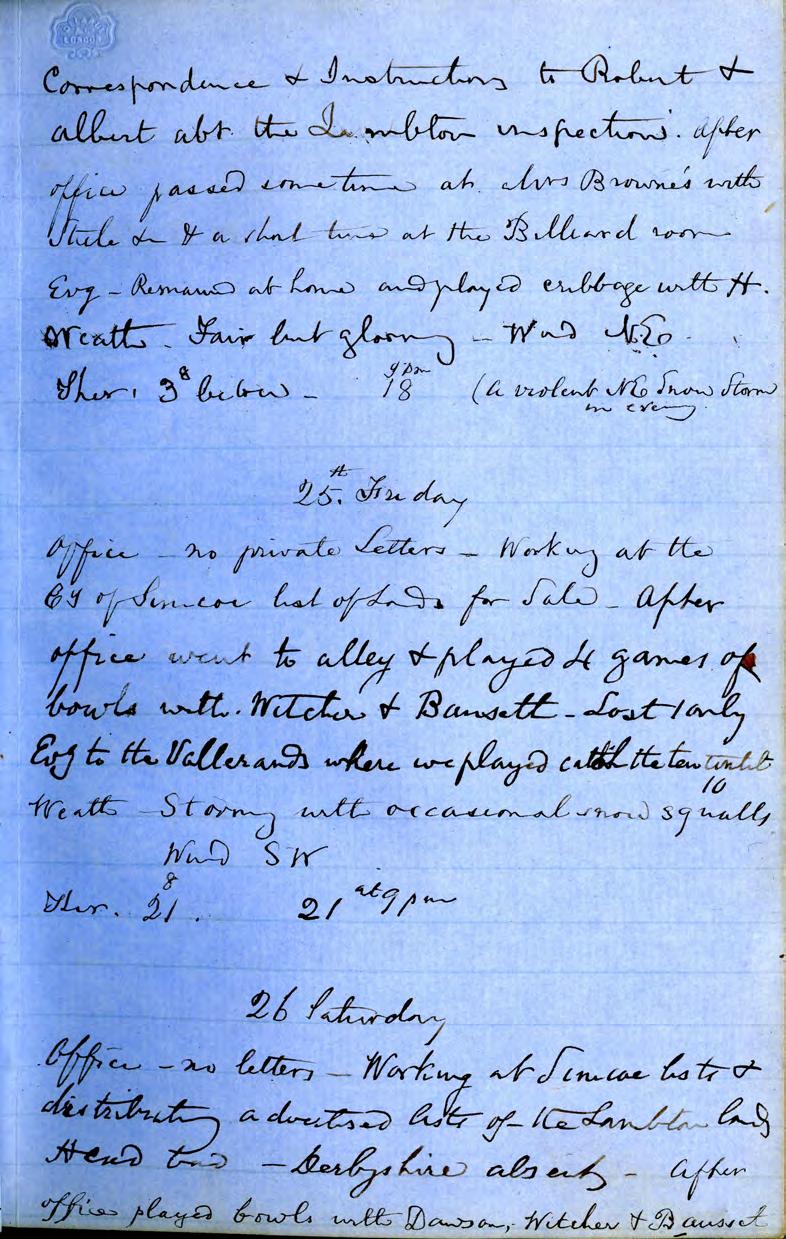 LONDON
Correspondence & Instructions to Robert &
Albert abt the Lambton inspection. After
office passed some time at Mrs Browne's with
Steele & a short time at the Billiard room
Evg - Remained at home and played cribbage with H.
Weath - Fair but gloomy - Wind NE
Ther. 3 8 below - 18 9 pm (A violent NE Snow Storm
in evening
25th Friday
Office - no private Letters - Working at the
Cy of Simcoe list of Lands for Sale - After
office went to alley & played 4 games of
bowls with Witcher & Bansett - Lost 1 only
Evg to the Vallerands where we played catch the ten until
10
Weath - Stormy with occasional snow squalls
Wind SW
Ther. 21 8 21 at 9 pm
26 Saturday
Office - no letters - Working at Simcoe lists &
distributing advertised lists of the Lambton lands
Head bad - Derbyshire absent - After
office played bowls with Dawson, Witcher & Bansett